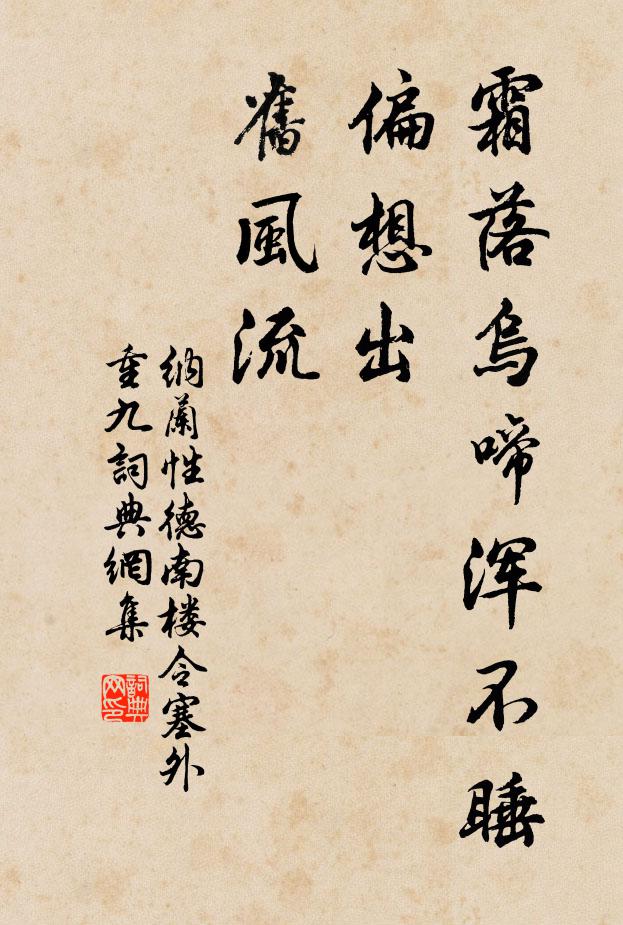 霜落烏啼渾不睡
偏想出
舊風流
纳蘭性德南楼令塞外
重九詞典網集
詞典
网印